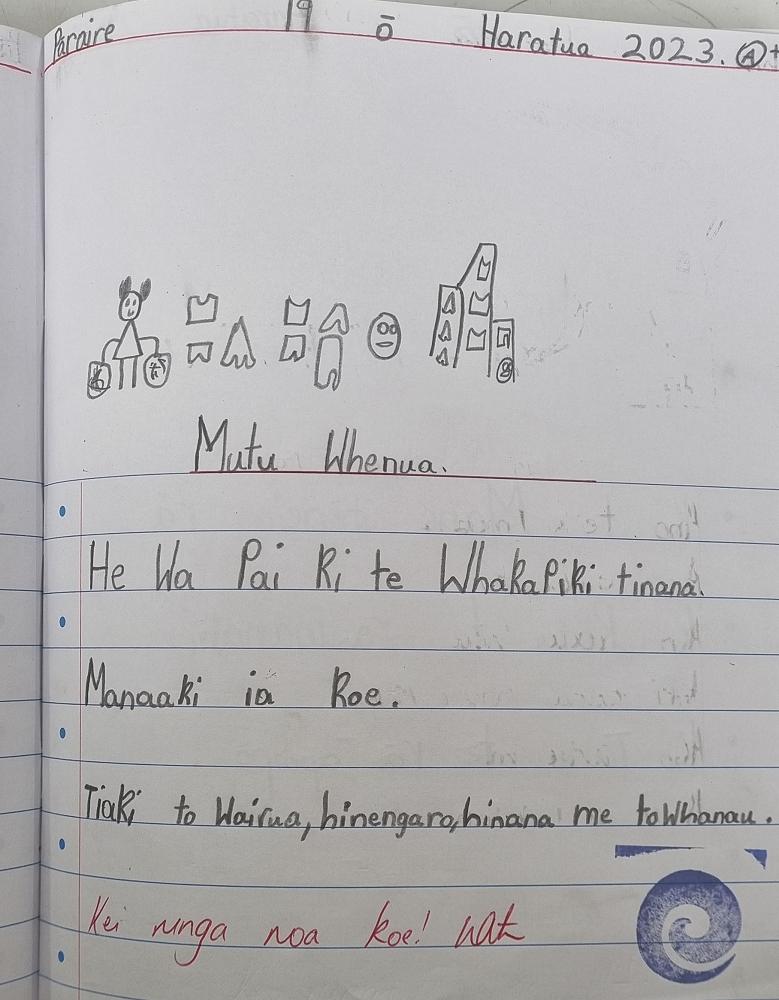 Paraire 19 ō Haratua 2023. A+
Mutu Whenua.
He Wa Pai Ki te WhaKaPiKi tinana.
ManaaKi ia Koe.
TiaKi to Wairua, hinengaro, hinana me to Whanau.
Kei runga noa koe!